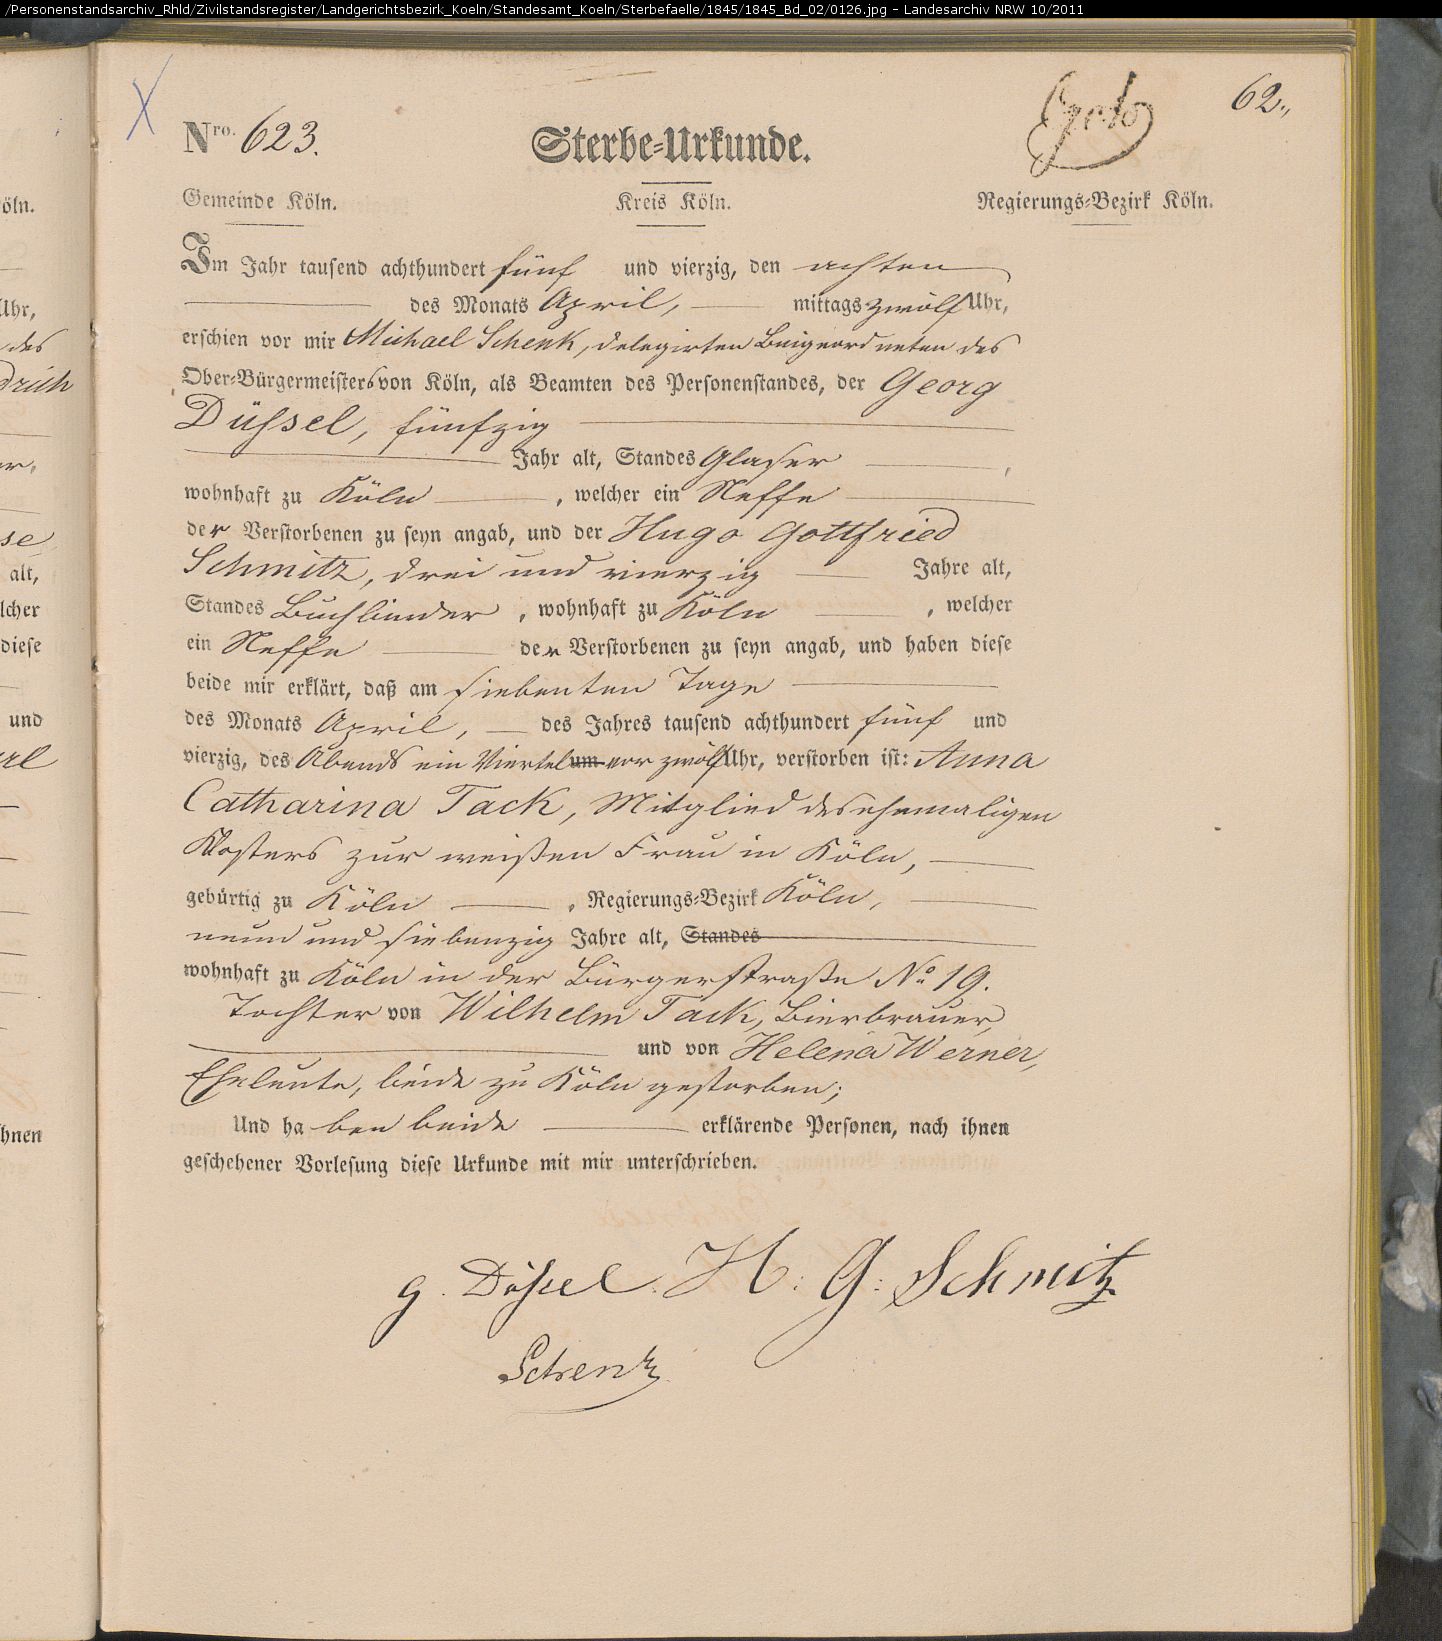 /Personenstandsarchiv_Rhld/Zivilstandsregister/Landgerichtsbezirk_Koeln/Standesamt_Koeln/Sterbefaelle/1845/1845_Bd_02/0126.jpg - Landesarchiv NRW 10/2011
62.,
Nro. 623.
Sterbe-Urkunde.
Gemeinde Köln. Kreis Köln. Regierungs-Bezirk Köln.
Im Jahr tausend achthundert fünf und vierzig, den achten
des Monats April, mittags zwölf Uhr,
erschien vor mir Michael Schenk, delegirten Beigeordneten des
Ober-Bürgermeisters von Köln, als Beamten des Personenstandes, der Georg
Düssel, fünfzig
Jahr alt, Standes Glaser ,
wohnhaft zu Köln , welcher ein Neffe
der Verstorbenen zu seyn angab, und der Hugo Gottfried
Schmitz, drei und vierzig Jahre alt,
Standes Buchbinder , wohnhaft zu Köln , welcher
ein Neffe der Verstorbenen zu seyn angab, und haben diese
beide mir erklärt, daß am siebenten Tage
des Monats April, des Jahres tausend achthundert fünf und
vierzig, des Abends ein Viertel um vor zwölf Uhr, verstorben ist: Anna
Catharina Tack, Mitglied des ehemaligen
Klosters zur weißen Frau in Köln,
gebürtig zu Köln , Regierungs-Bezirk Köln,
neun und siebenzig Jahre alt, Standes
wohnhaft zu Köln in der Bürgerstraße No 19.
Tochter von Wilhelm Tack, Bierbrauer,
und von Helena Werner,
Eheleute, beide zu Köln gestorben;
Und haben beide erklärende Personen, nach ihnen
geschehener Vorlesung diese Urkunde mit mir unterschrieben.
g. Düssel. H: G: Schmitz
Schenk
öln.
Uhr,
des
drich
se
alt,
lcher
diese
und
ihnen